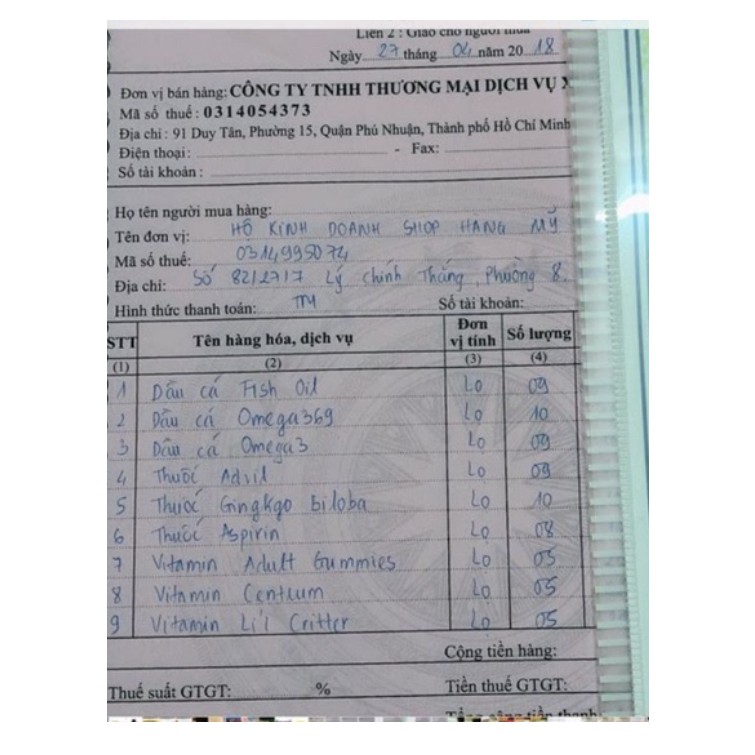 Liên 2 : Giao cho người mua
Ngày 27 tháng 04 năm 20 18
Đơn vị bán hàng: CÔNG TY TNHH THƯƠNG MẠI DỊCH VỤ X
Mã số thuế : 0314054373
Địa chỉ : 91 Duy Tân, Phường 15, Quận Phú Nhuận, Thành phố Hồ Chí Minh
Điện thoại : - Fax:
Số tài khoản :
Họ tên người mua hàng:
Tên đơn vị: HỘ KINH DOANH SHOP HÀNG MỸ
Mã số thuế: 0314995074
Địa chỉ: Số 82/27/7 Lý Chính Thắng, Phường 8.
Hình thức thanh toán: TM Số tài khoản:
STT Tên hàng hóa, dịch vụ Đơn vị tính Số lượng
(1) (2) (3) (4)
1 Dầu cá Fish Oil Lọ 09
2 Dầu cá Omega369 Lọ 10
3 Dầu cá Omega3 Lọ 09
4 Thuốc Advil Lọ 09
5 Thuốc Gingkgo biloba Lọ 10
6 Thuốc Aspirin Lọ 08
7 Vitamin Adult Gummies Lọ 05
8 Vitamin Centrum Lọ 05
9 Vitamin Li'l Critter Lọ 05
Cộng tiền hàng:
Thuế suất GTGT: % Tiền thuế GTGT:
Tổng cộng tiền thanh